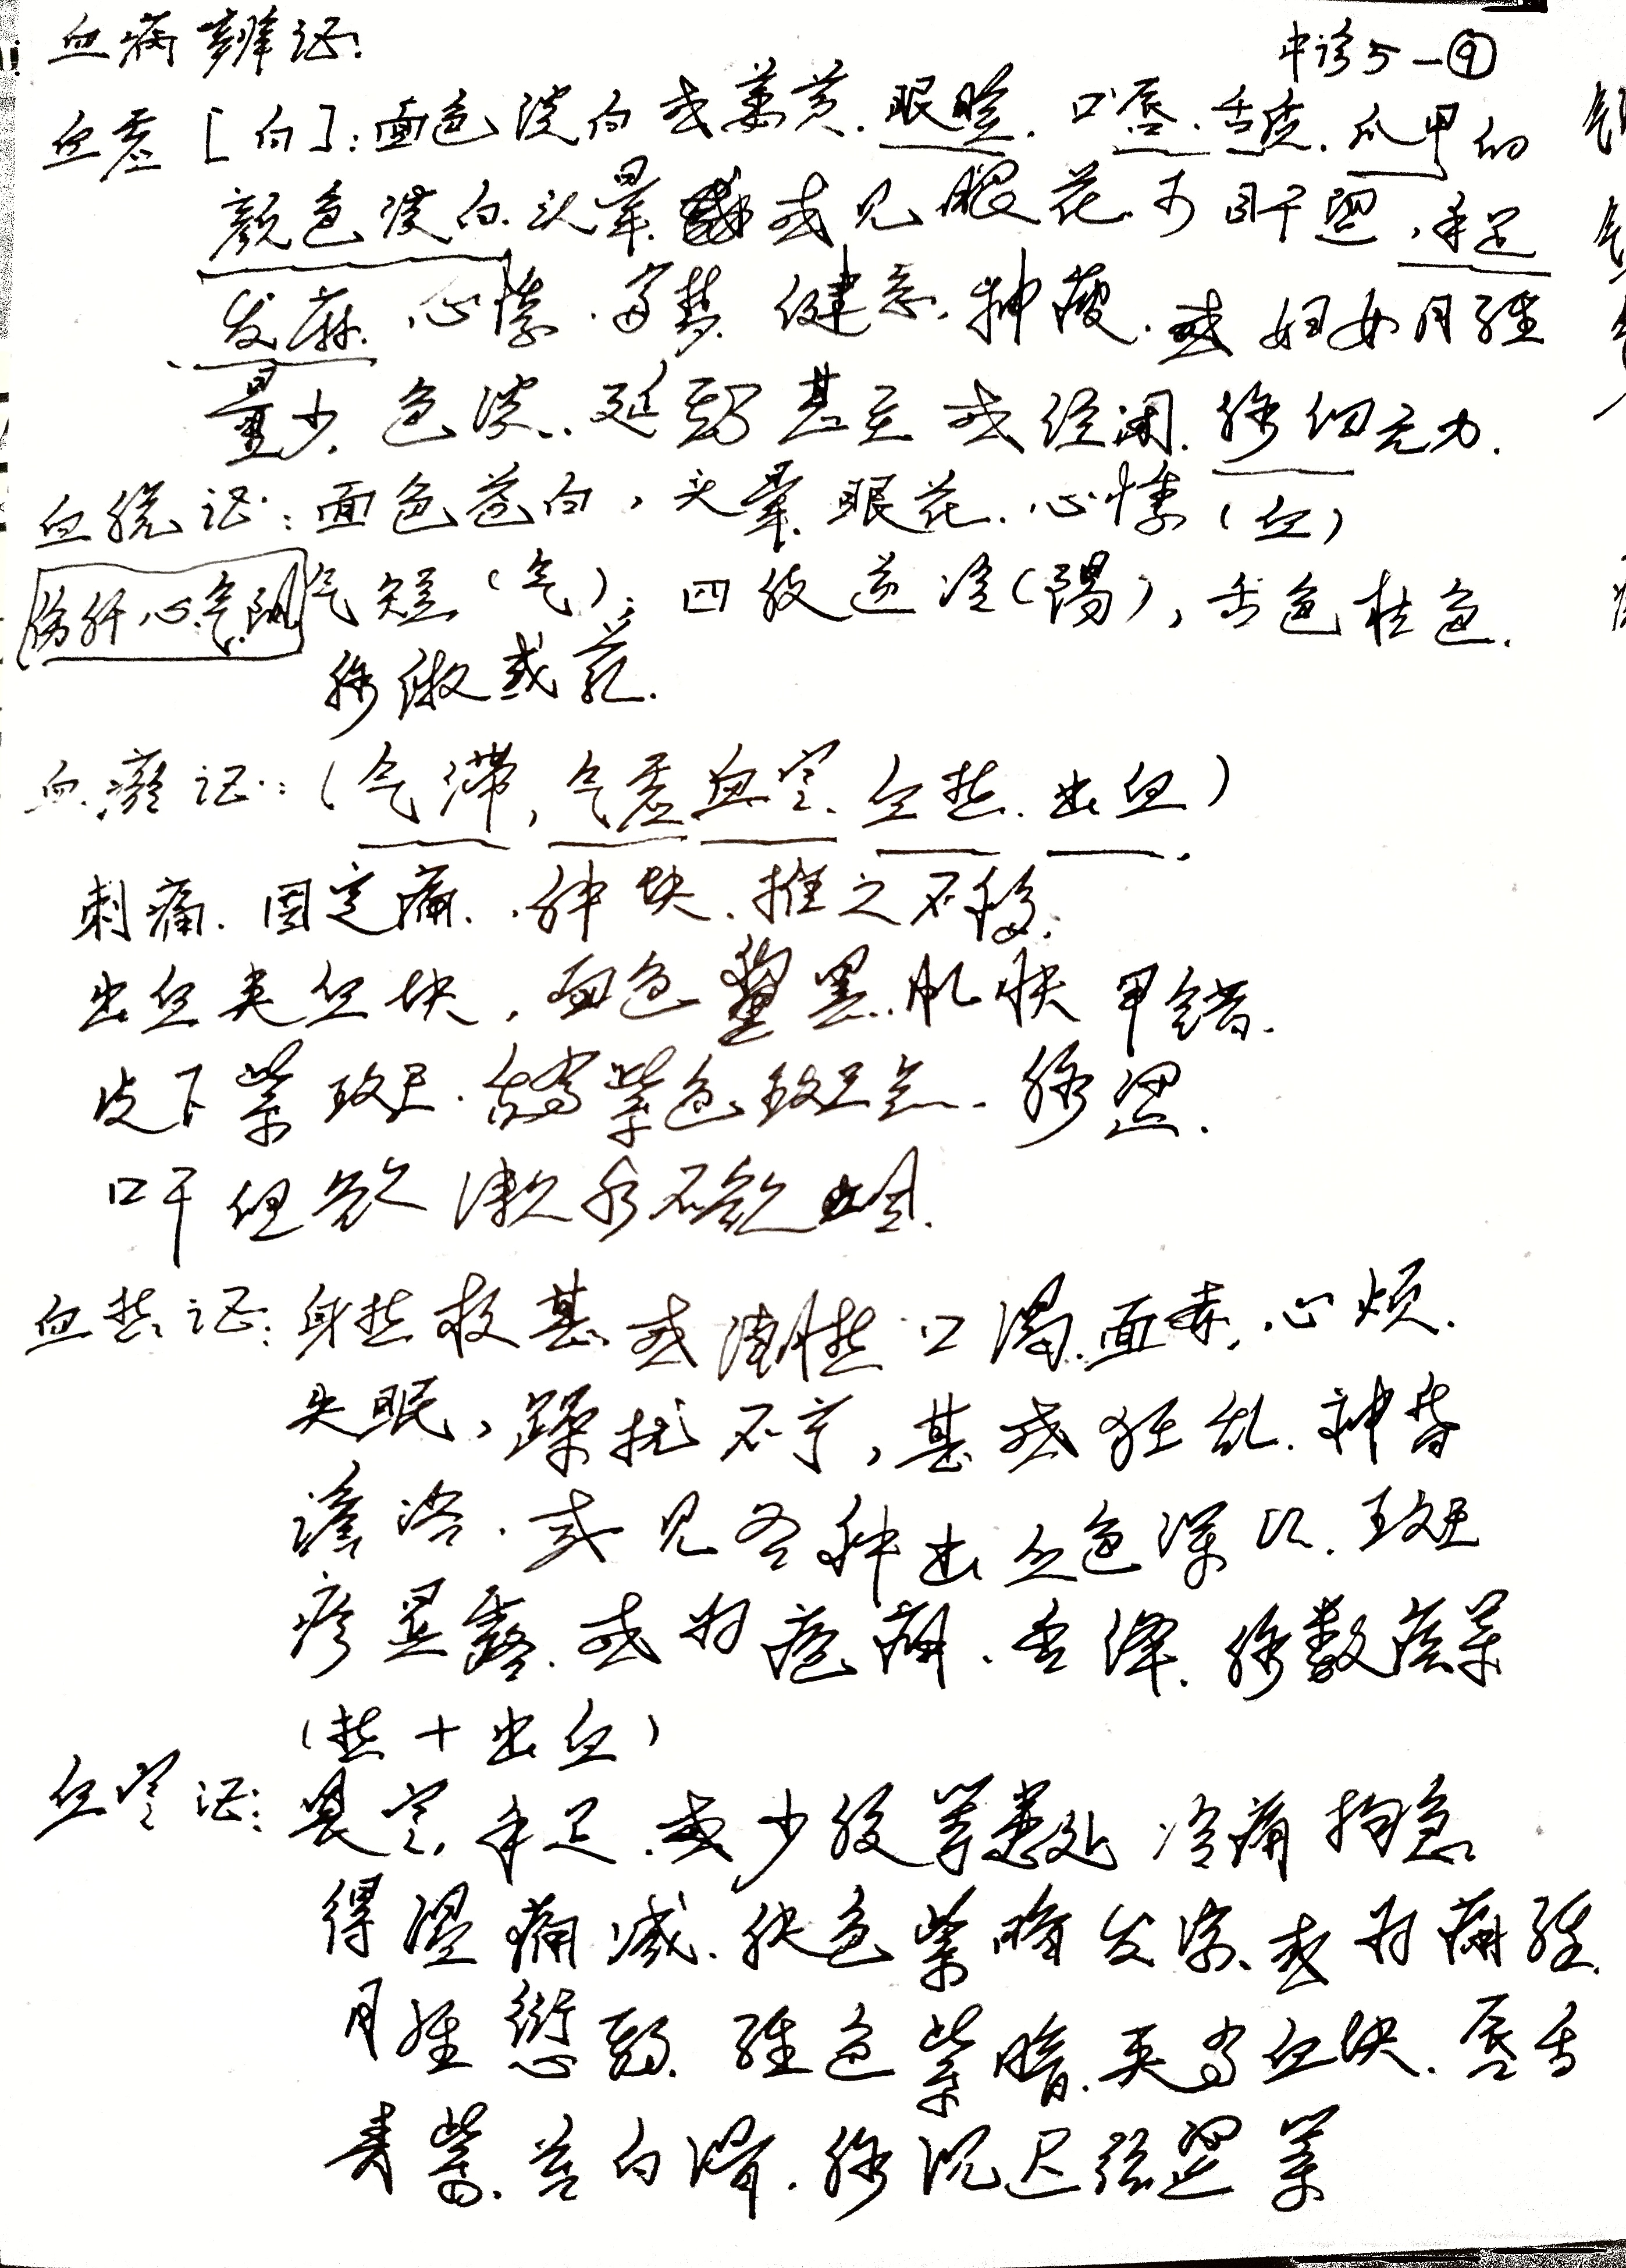 血病辨证:
中诊5-⑨
血虚[白]:面色淡白或萎黄.眼睑.口唇.舌质.爪甲的
颜色淡白.头晕.或见眼花.可目干涩,手足
发麻.心悸.多梦.健忘.神疲.或妇女月经
量少.色淡.延期甚至或经闭.脉细无力.
血脱证:面色苍白,头晕.眼花.心悸(血)
伤肝心气阳
气短(气),四肢逆冷(陽),舌色枯色.
脉微或芤.
血瘀证:(气滞,气虚.血寒.血热.出血)
刺痛.固定痛.肿块.推之不移.
出血夹血块,面色黧黑.肌肤甲错.
皮下紫斑.舌有紫色斑点.脉涩.
口干但欲漱水不欲咽.
血热证:身热夜甚或潮热口渴.面赤,心烦.
失眠,躁扰不宁,甚或狂乱.神昏
谵语.或见各种出血色深红.斑
疹显露.或为疮痈.舌绛.脉数疾等
(热+出血)
血寒证:畏寒,手足.或少腹等患处冷痛拘急
得温痛减.肤色紫暗发凉.或为痛经.
月经愆期.经色紫暗.夹有血块.唇舌
青紫.苔白滑.脉沉迟弦涩等